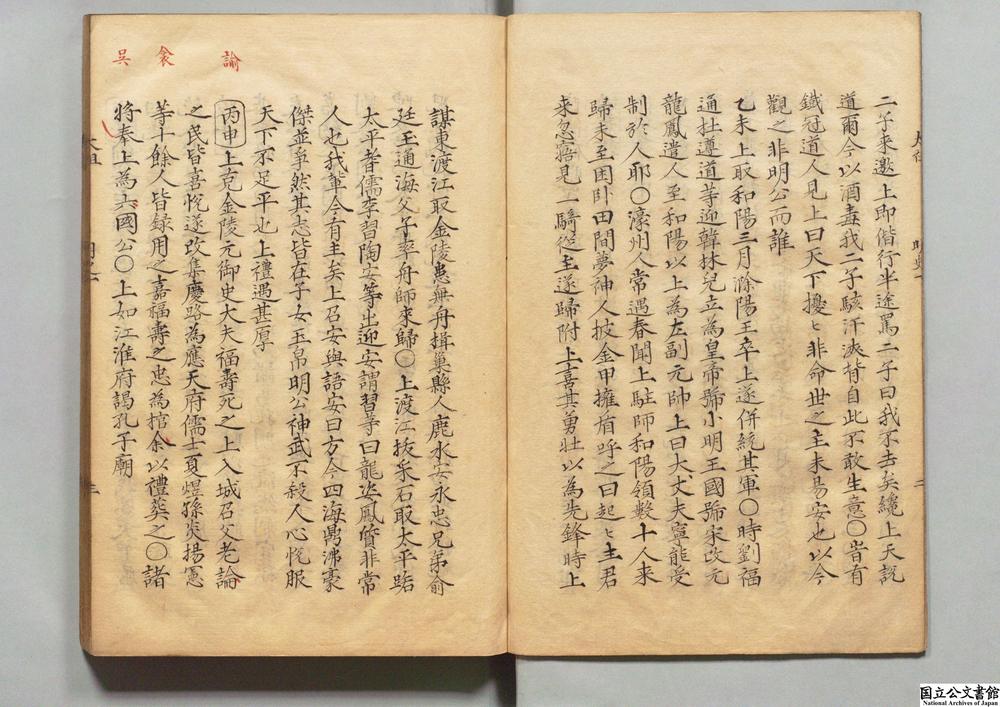 二子来邀上即偕行半途罵二子曰我不去矣纔上天説
道爾今以酒毒我二子駭汗浹背自此不敢生意〇甞有
鐵冠道人見上曰天下擾〻非命世之主未易安也以今
觀之非明公而誰
乙未上取和陽三月滁陽王卒上遂併統其軍〇時劉福
通杜遵道等迎韓林兒立為皇帝號小明王國號宋改元
龍鳳遣人至和陽以上為左副元帥上曰大丈夫寧能受
制於人耶〇濠州人常遇春聞上駐師和陽領數十人来
歸未至困卧田間夢神人披金甲擁盾呼之曰起〻主君
来忽寤見一騎從至遂歸附上喜其勇壮以為先鋒時上
謀東渡江取金陵患無舟揖巢縣人鹿水安永忠兄弟俞
廷玉通海父子率舟師來歸〇上渡江抜采石取太平路
太平耆儒李習陶安等出迎安謂習等曰龍姿鳳質非常
人也我軰今有主矣上召安與語安曰方今四海鼎沸豪
傑並爭然其志皆在子女玉帛明公神武不殺人心悅服
天下不足平也上禮遇甚厚
丙申上克金陵元御史大夫福壽死之上入城召父老論
之民皆喜悅遂改集慶路為應天府儒士夏煜孫炎揚憲
等十餘人皆録用之嘉福壽之忠為棺余以禮葬之〇諸
将奉上為六國公〇上如江淮府謁孔子廟
諭
衾
呉
国立公文書館
National Archives of Japan